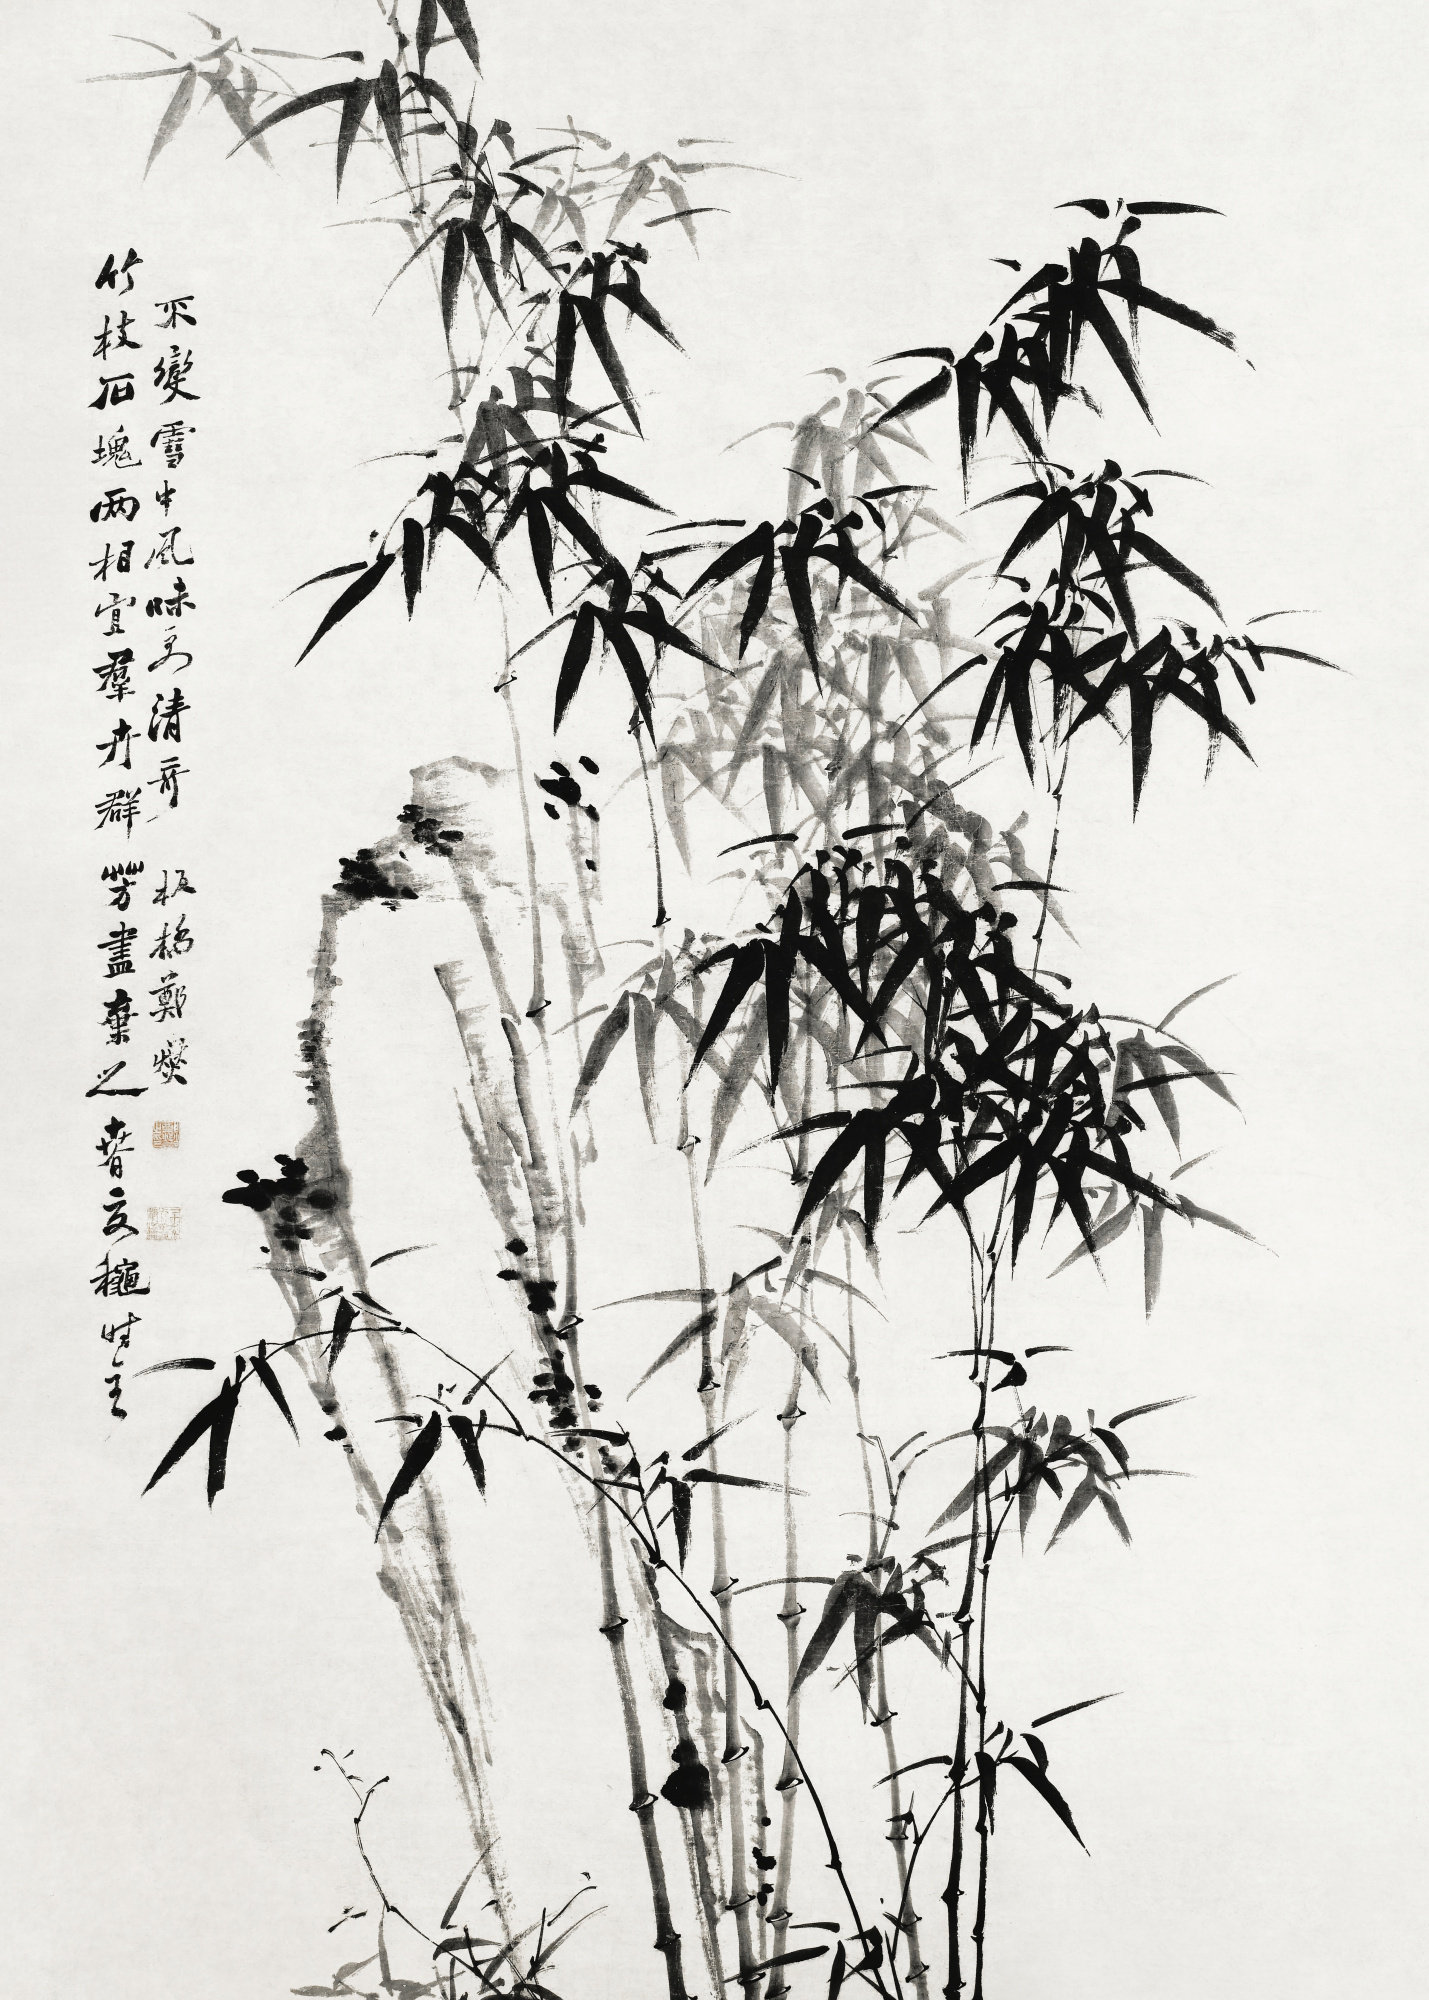 竹枝石塊两相宜羣卉群芳盡棄之春夏龝時全
不變雪中風味更清奇 板橋鄭燮